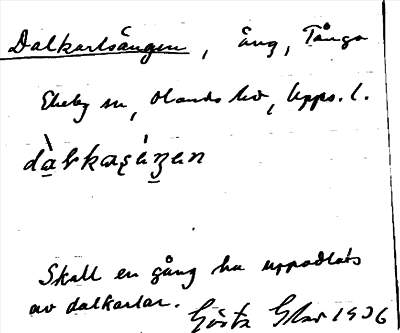 Dalkarlsängen, äng, Tånga
Ekeby sn, Olands hd, Upps. l.
Skall en gång ha uppodlats
av dalkarlar. Gösta 1936